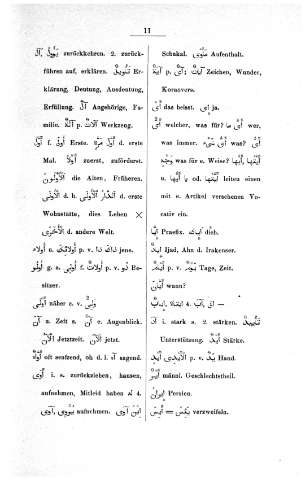 11
آلَ يَؤُولُ zurückkehren. 2. zurück-
führen auf, erklären. تَأْوِيلٌ Er-
klärung, Deutung, Ausdeutung,
Erfüllung. آلٌ Angehörige, Fa-
milie. آلَةٌ p. آلَاتٌ Werkzeug.
أَوَّلُ f. أُولَى Erste. أَوَّلَ مَرَّةٍ d. erste
Mal. أَوَّلًا zuerst, zuförderst.
الأَوَّلُونَ die Alten, Früheren.
الأُولَى d. h. الدَّارُ الأُولَى d. erste
Wohnstätte, dies Leben ✕
الأُخْرَى d. andere Welt.
أُولَاءِ u. أُولَائِكَ p. v. ذَا ذَاكَ jene.
أُولُو g. a. أُولِي f. أُولَاتُ p. v. ذُو Be-
sitzer.
أَوْلَى näher c. وَلِيَ v.
آنٌ u. أَوَانٌ Zeit s. Augenblick.
الآنَ Jetztzeit. الآنَ jetzt.
أَوَّاهٌ oft seufzend, oh d. i. آهِ sagend.
أَوَى i. s. zurückziehen, hausen,
aufnehmen, Mitleid haben 4.
آوَى, يُؤْوِي aufnehmen. ابْنُ آوَى
Schakal. مَأْوًى Aufenthalt.
آيَةٌ p. آيٌ, آيَاتٌ Zeichen, Wunder,
Koransvers.
أَيْ das heisst. إِي ja.
أَيٌّ welcher, was für? مَا أَيُّ wer,
was immer. أَيُّ شَيْءٍ was? أَيُّ
وَجْهٍ was für e. Weise? أَيُّهَا أَيَّتُهَا
u. يَا أَيُّهَا od. أَيَّتُهَا leiten einen
mit e. Artikel versehenen Vo-
cativ ein.
إِيَّا Praefix. إِيَّاكَ dich.
إِيَادٌ Ijad, Ahn d. Irakenser.
أَيَّامٌ p. v. يَوْمٌ Tage, Zeit.
أَيَّانَ wann?
i. stark s. 2. stärken. تَأْيِيدٌ
Unterstützung. أَيْدٌ Stärke.
أَيْدٍ, الأَيْدِي p. v. يَدٌ Hand.
أَيْرٌ männl. Geschlechtstheil.
إِيرَانُ Persien.
أَيِسَ, يَيْأَسُ verzweifeln.